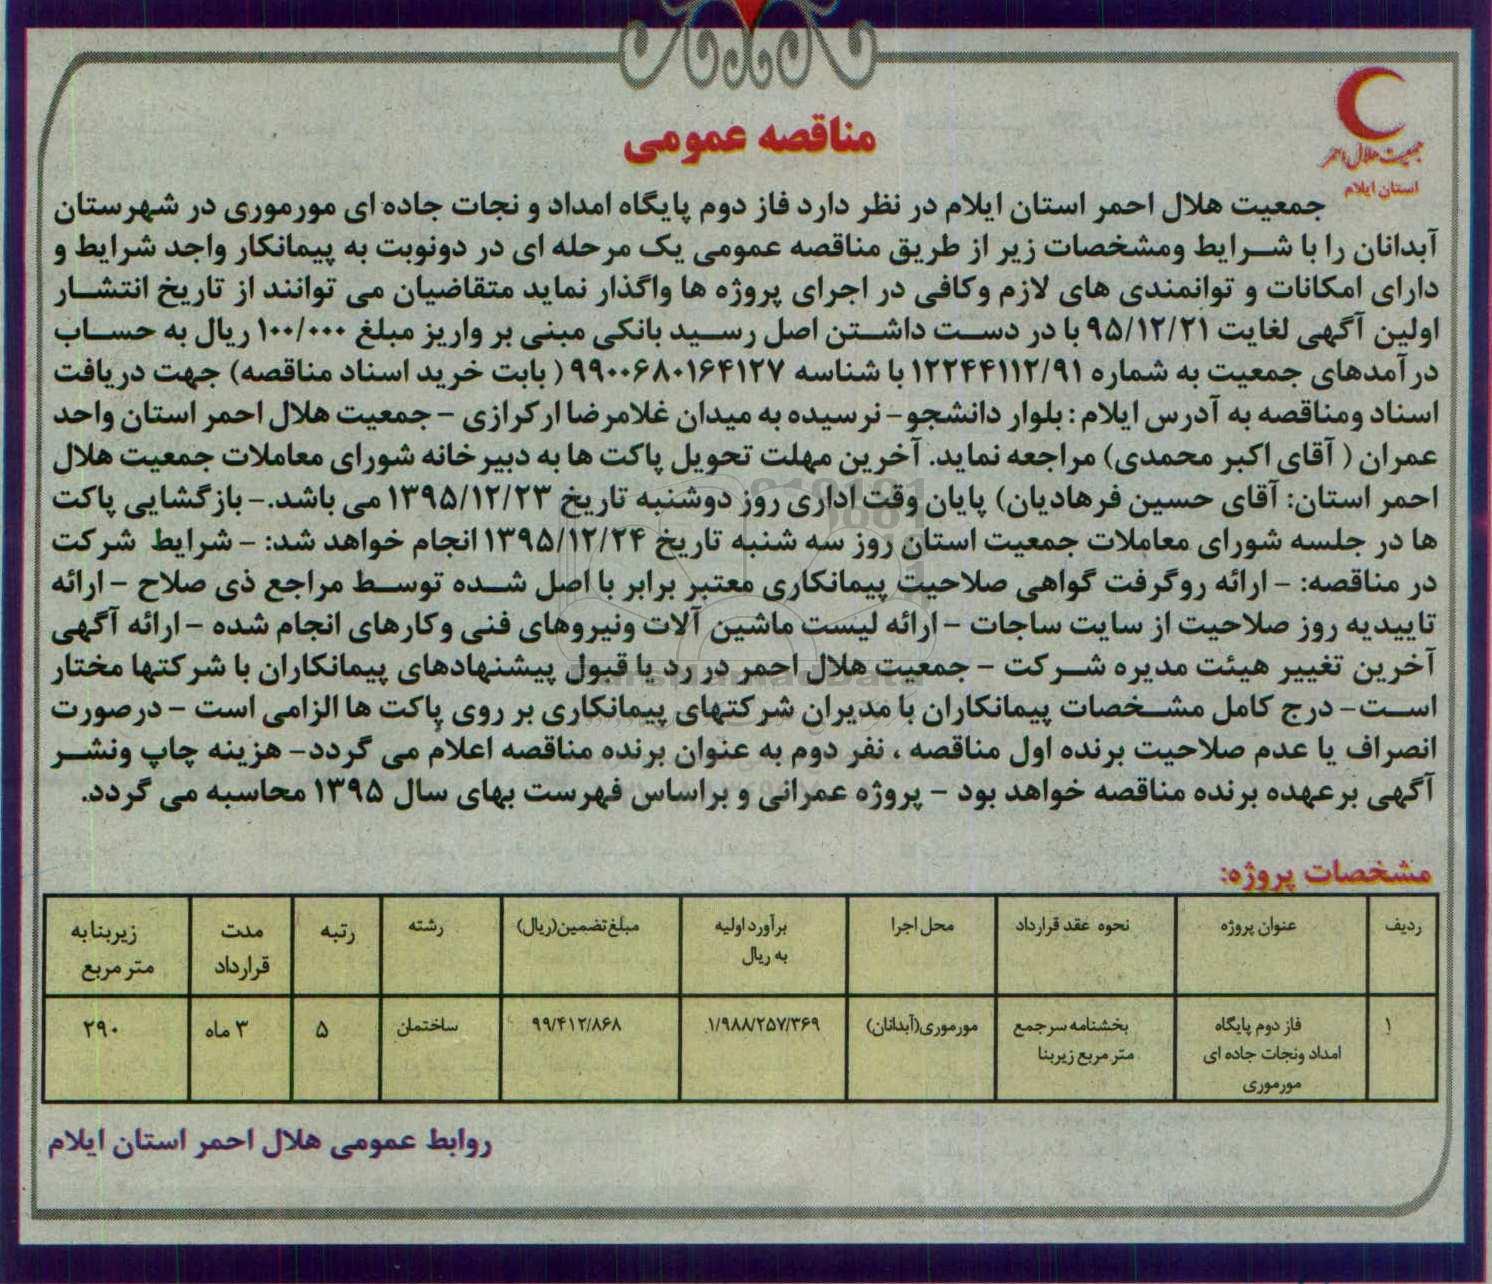 جمعیت هلال احمر
استان ایلام
مناقصه عمومی
جمعیت هلال احمر استان ایلام در نظر دارد فاز دوم پایگاه امداد و نجات جاده ای مورموری در شهرستان
آبدانان را با شرایط ومشخصات زیر از طریق مناقصه عمومی یک مرحله ای در دونوبت به پیمانکار واجد شرایط و
دارای امکانات و توانمندی های لازم وکافی در اجرای پروژه ها واگذار نماید متقاضیان می توانند از تاریخ انتشار
اولین آگهی لغایت ۹۵/۱۲/۲۱ با در دست داشتن اصل رسید بانکی مبنی بر واریز مبلغ ۱۰۰/۰۰۰ ریال به حساب
درآمدهای جمعیت به شماره ۱۲۲۴۴۱۱۲/۹۱ با شناسه ۹۹۰۰۶۸۰۱۶۴۱۲۷ ( بابت خرید اسناد مناقصه) جهت دریافت
اسناد ومناقصه به آدرس ایلام : بلوار دانشجو - نرسیده به میدان غلامرضا ارکرازی - جمعیت هلال احمر استان واحد
عمران ( آقای اکبر محمدی) مراجعه نماید. آخرین مهلت تحویل پاکت ها به دبیرخانه شورای معاملات جمعیت هلال
احمر استان: آقای حسین فرهادیان) پایان وقت اداری روز دوشنبه تاریخ ۱۳۹۵/۱۲/۲۳ می باشد.- بازگشایی پاکت
ها در جلسه شورای معاملات جمعیت استان روز سه شنبه تاریخ ۱۳۹۵/۱۲/۲۴ انجام خواهد شد: - شرایط شرکت
در مناقصه: - ارائه روگرفت گواهی صلاحیت پیمانکاری معتبر برابر با اصل شده توسط مراجع ذی صلاح - ارائه
تاییدیه روز صلاحیت از سایت ساجات - ارائه لیست ماشین آلات ونیروهای فنی وکارهای انجام شده - ارائه آگهی
آخرین تغییر هیئت مدیره شرکت - جمعیت هلال احمر در رد یا قبول پیشنهادهای پیمانکاران با شرکتها مختار
است- درج کامل مشخصات پیمانکاران با مدیران شرکتهای پیمانکاری بر روی پاکت ها الزامی است - درصورت
انصراف یا عدم صلاحیت برنده اول مناقصه ، نفر دوم به عنوان برنده مناقصه اعلام می گردد- هزینه چاپ ونشر
آگهی برعهده برنده مناقصه خواهد بود - پروژه عمرانی و براساس فهرست بهای سال ۱۳۹۵ محاسبه می گردد.
مشخصات پروژه:
ردیف عنوان پروژه نحوه عقد قرارداد محل اجرا برآورد اولیه به ریال مبلغ تضمین(ریال) رشته رتبه مدت قرارداد زیربنا به متر مربع
۱ فاز دوم پایگاه امداد ونجات جاده ای مورموری بخشنامه سرجمع متر مربع زیربنا مورموری(آبدانان) ۱/۹۸۸/۲۵۷/۳۶۹ ۹۹/۴۱۲/۸۶۸ ساختمان ۵ ۳ ماه ۲۹۰
روابط عمومی هلال احمر استان ایلام